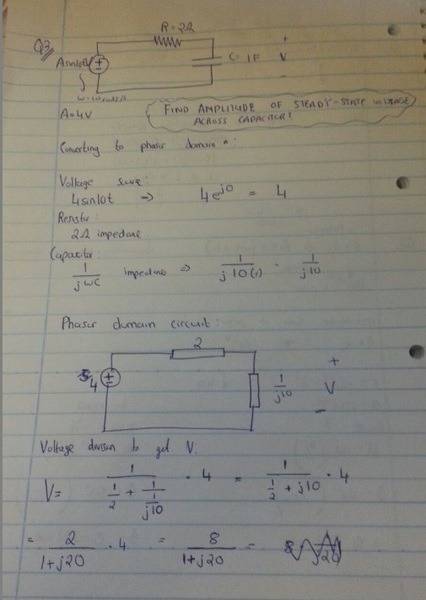 Q3
R = 2Ω
+
Asin10t
C = 1F
V
-
ω = 10 rads/s
A=4V
FIND AMPLITUDE OF STEADY-STATE VOLTAGE
ACROSS CAPACITOR!
Converting to phasor domain:
Voltage source:
4sin10t => 4e^j0 = 4
Resistor:
2Ω impedance
Capacitor:
1/jωC impedance => 1/j10(1) = 1/j10
Phasor domain circuit:
2
+
4
1/j10
V
-
Voltage division to get V.
V = 1/(1/2 + 1/(1/j10)) · 4 = 1/(1/2 + j10) · 4
= 2/(1+j20) · 4 = 8/(1+j20) =